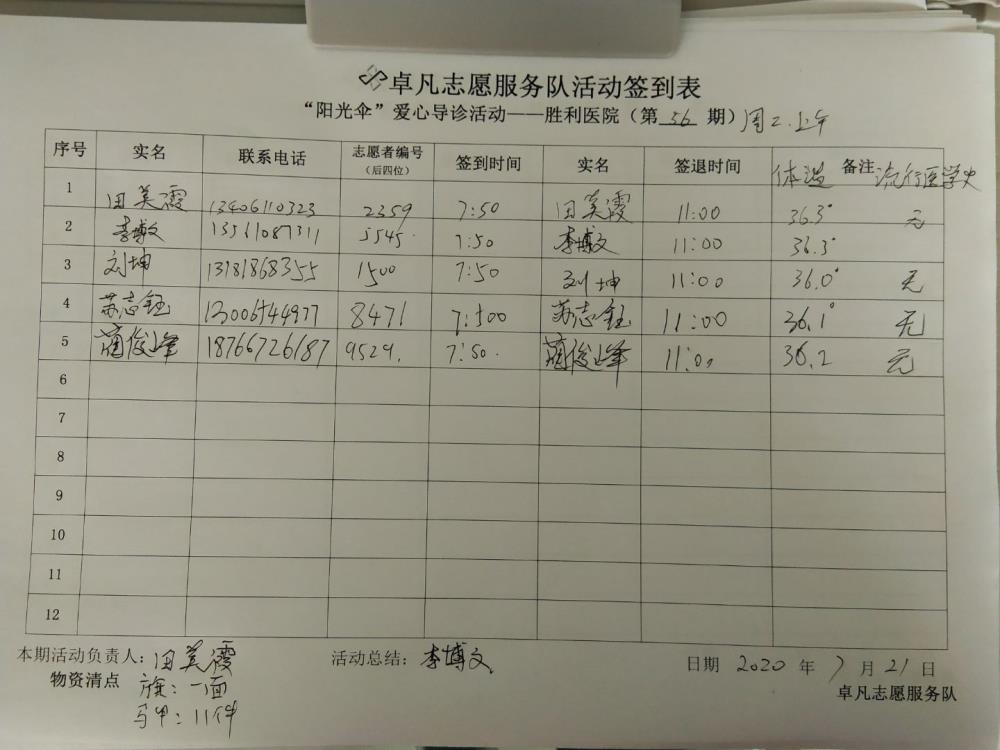 卓凡志愿服务队活动签到表
“阳光伞”爱心导诊活动——胜利医院（第 56 期）周2.上午
序号 实名 联系电话 志愿者编号（后四位） 签到时间 实名 签退时间 体温 备注 流行医学史
1 田美霞 13406110323 2359 7:50 田美霞 11:00 36.3° 无
2 李博文 13561087311 5545 7:50 李博文 11:00 36.3°
3 刘坤 13181868355 1500 7:50 刘坤 11:00 36.0° 无
4 苏志钰 8471 苏志钰 11:00 36.1° 无
5 俊峰 18766726187 9529. 7:50. 俊峰 11:00 36.2 无
6
7
8
9
10
11
12
本期活动负责人：田美霞 活动总结：李博文 日期 2020 年 7 月 21 日
物资清点 旗：一面 卓凡志愿服务队
马甲：11件